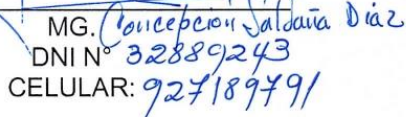 MG. Concepcion Saldaña Díaz
DNI N° 32889243
CELULAR: 927189791